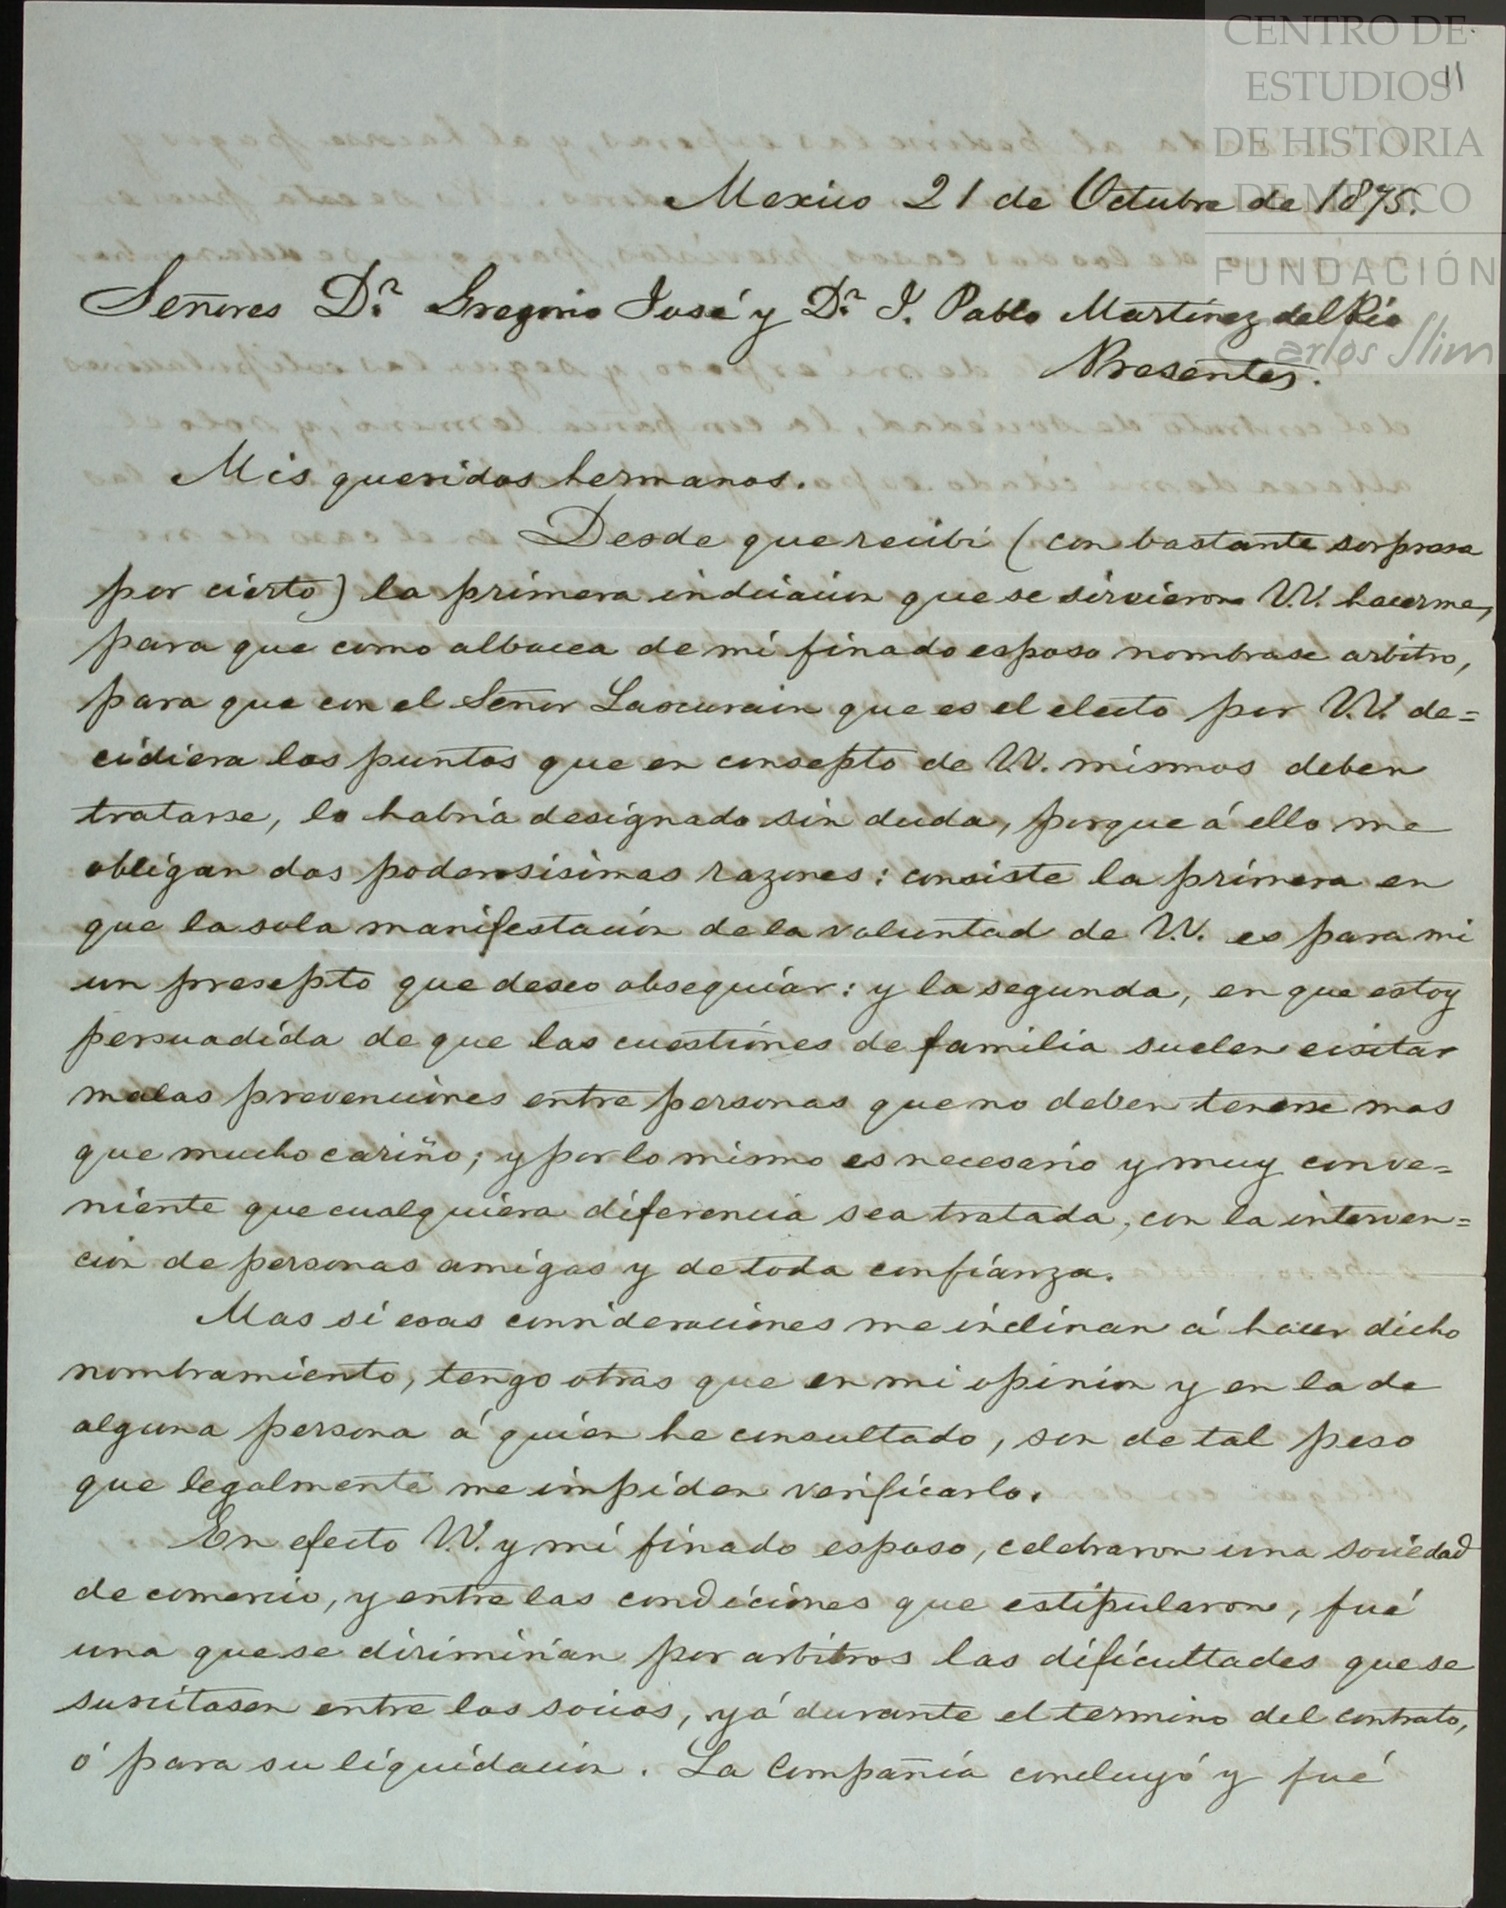 CENTRO DE
ESTUDIOS
DE HISTORIA
DE MÉXICO
FUNDACIÓN
Carlos Slim
11
Mexico 21 de Octubre de 1875.
Señores Dn. Gregorio José y Dn. J. Pablo Martínez del Río
Presentes.
Mis queridos hermanos.
Desde que recibí (con bastante sorpresa
por cierto) la primera indicacion que se sirvieron V.V. hacerme,
para que como albacea de mi finado esposo nombrase arbitro,
para que con el Señor Lascurain que es el electo por V.V. de=
cidiera los puntos que en consepto de V.V. mismos deben
tratarse, lo habria designado sin duda, porque á ello me
obligan dos poderosisimas razones: consiste la primera en
que la sola manifestacion de la voluntad de V.V. es para mi
un presepto que deseo obsequiar: y la segunda, en que estoy
persuadida de que las cuestiones de familia suelen ecsitar
malas prevenciones entre personas que no deben tenerse mas
que mucho cariño; y por lo mismo es necesario y muy conve=
niente que cualquiera diferencia sea tratada, con la interven=
cion de personas amigas y de toda confianza.
Mas si esas consideraciones me inclinan á hacer dicho
nombramiento, tengo otras que en mi opinion y en la de
alguna persona á quien he consultado, son de tal peso
que legalmente me impiden verificarlo.
En efecto V.V. y mi finado esposo, celebraron una sociedad
de comercio, y entre las condiciones que estipularon, fué
una que se dirimirian por arbitros las dificultades que se
suscitasen entre los socios, yá durante el termino del contrato,
ó para su liquidacion. La Compañia concluyó y fué